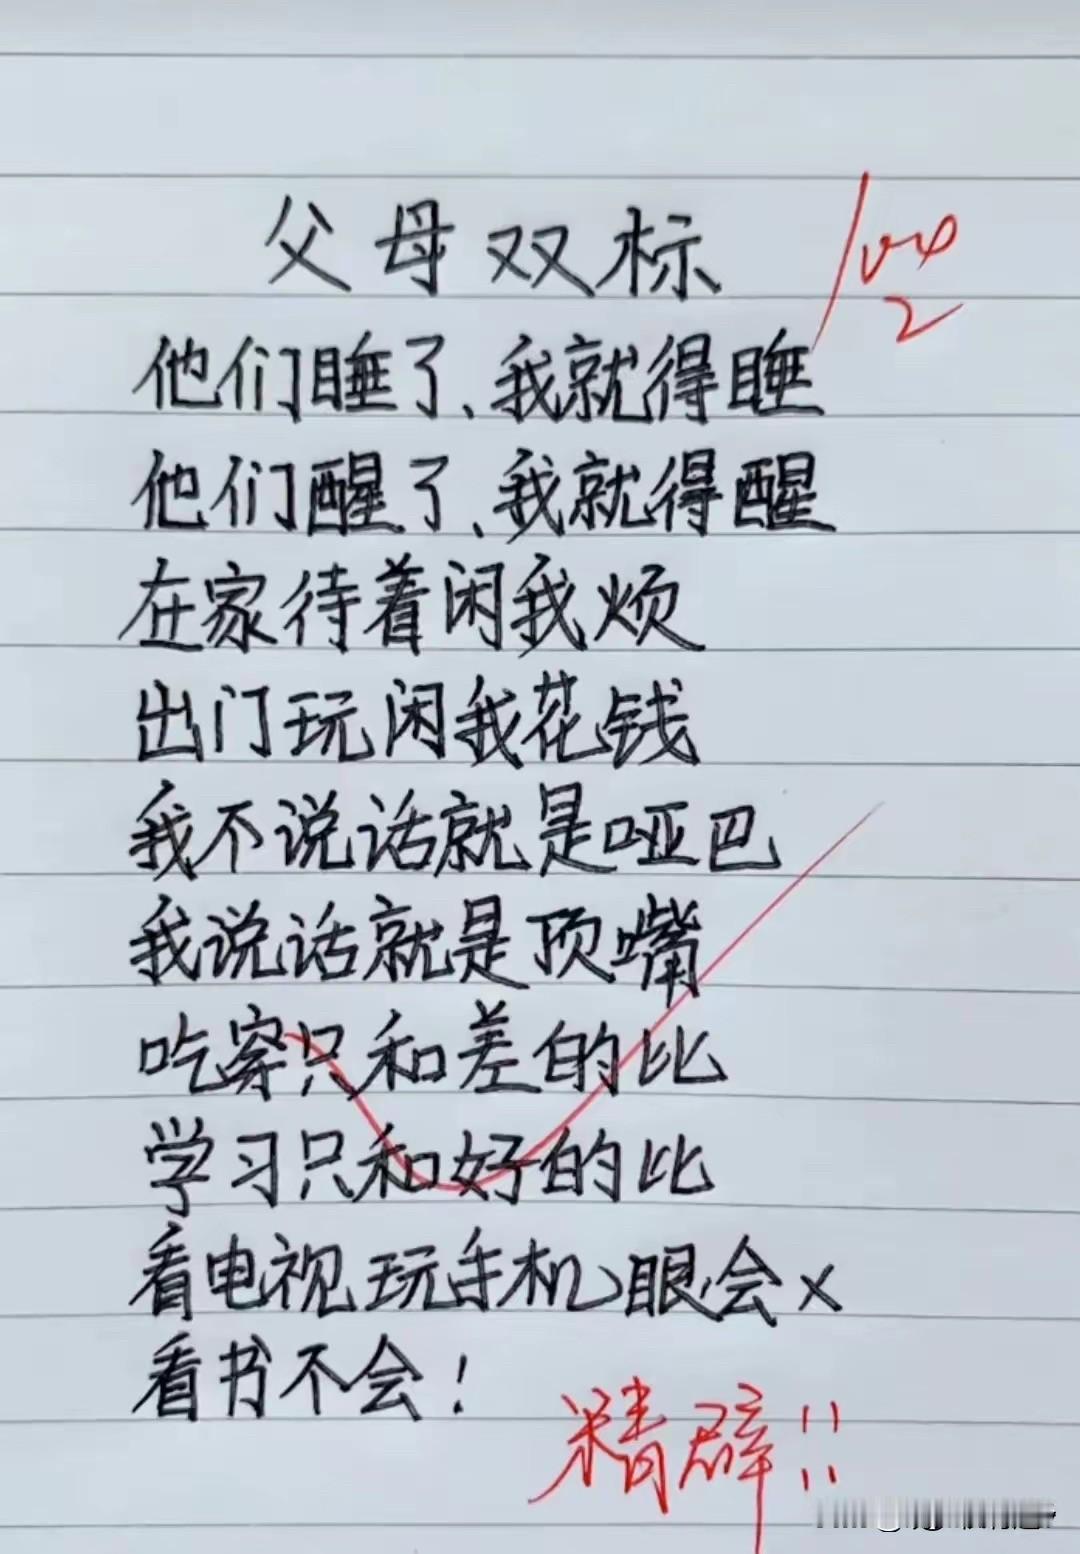 父母双标
100
2
他们睡了、我就得睡
他们醒了、我就得醒
在家待着闲我烦
出门玩闲我花钱
我不说话就是哑巴
我说话就是顶嘴
吃穿只和差的比
学习只和好的比
看电视玩手机眼会x
看书不会！
精辟!!